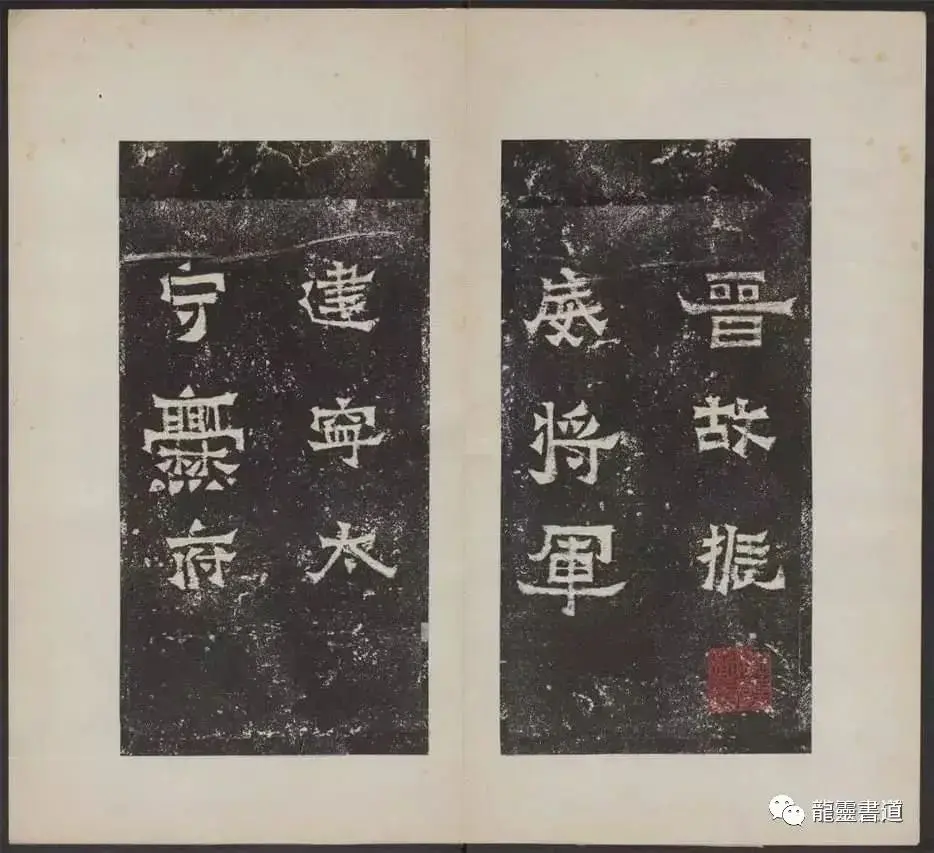 晉故振
威將軍
建寧太
守爨府
龍靈書道